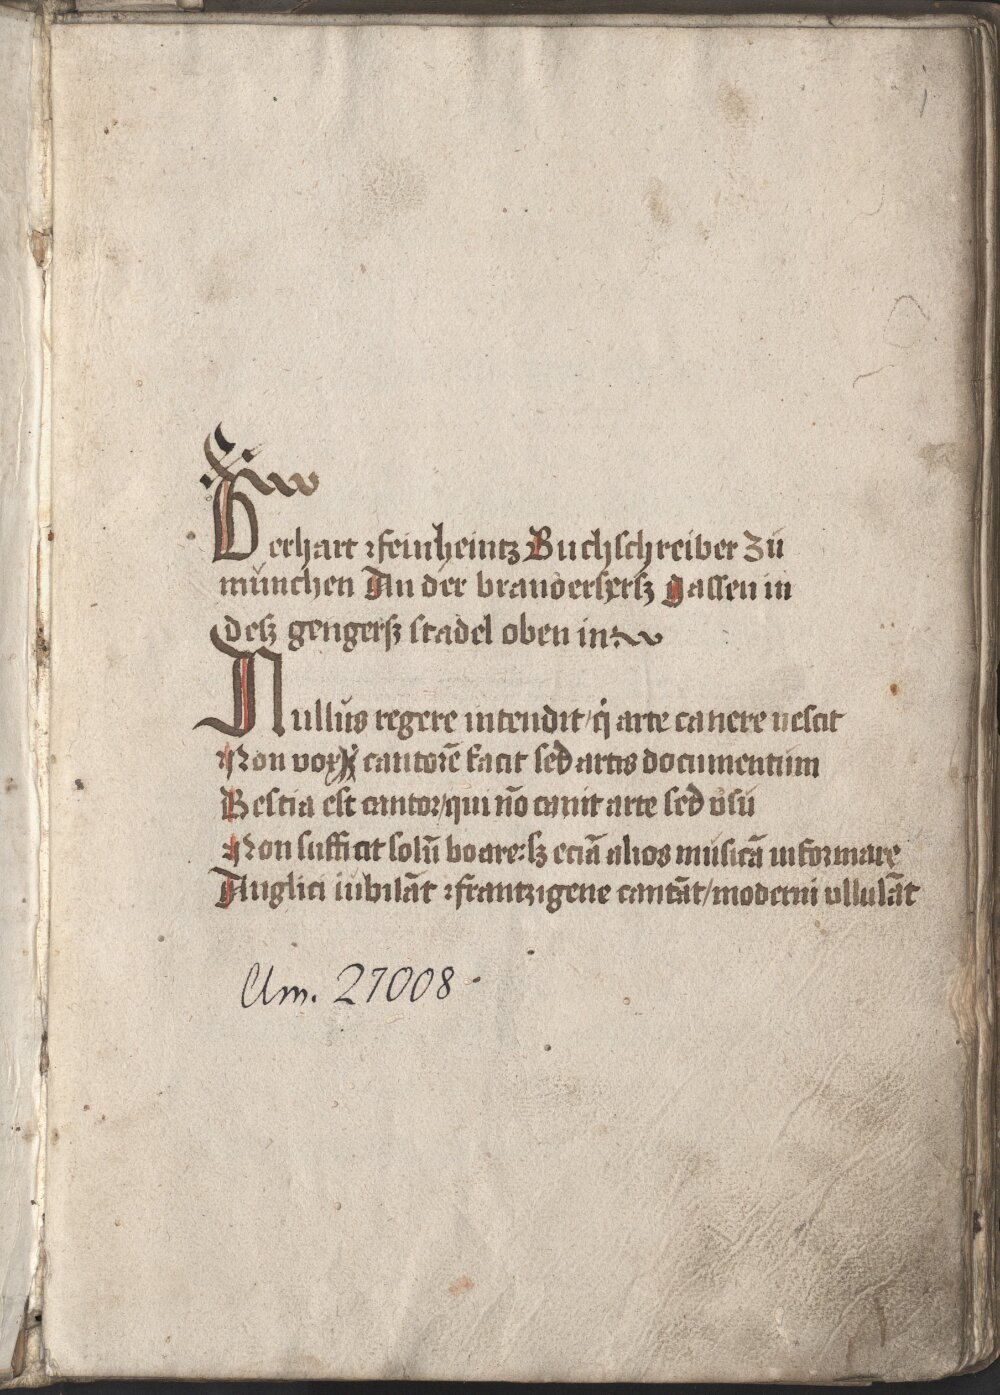 Gerhart feinheintz Buchschreiber zů
münchen An der brandersersz gassen in
desz gengersz stadel oben in
Nullus regere intendit / q̃ arte canere nescit
Non vox cantorē facit sed artis documentum
Bestia est cantor / qui nō canit arte sed vsu
Non sufficit solū boare: sz eciā alios musicā informare
Anglici iubilāt frantzigene cantāt / moderni vllulāt
Um. 27008